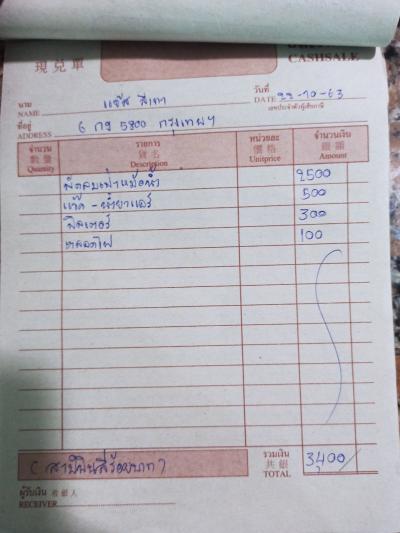 CASHSALE
現兌單
นาม
NAME แจ๊ส สีเทา
วันที่
DATE 22-10-63
เลขประจำตัวผู้เสียภาษี
ที่อยู่
ADDRESS 6 กฐ 5800 กรุงเทพฯ
จำนวน รายการ หน่วยละ จำนวนเงิน
數量 貨名 價格 銀額
Quantity Description Unitprice Amount
พัดลมเป่าหม้อน้ำ 2500
แว๊ค - น้ำยาแอร์ 500
ฟิลเตอร์ 300
หลอดไฟ 100
(สามพันสี่ร้อยบาท) รวมเงิน 3,400/
共銀
TOTAL
ผู้รับเงิน 收銀人
RECEIVER